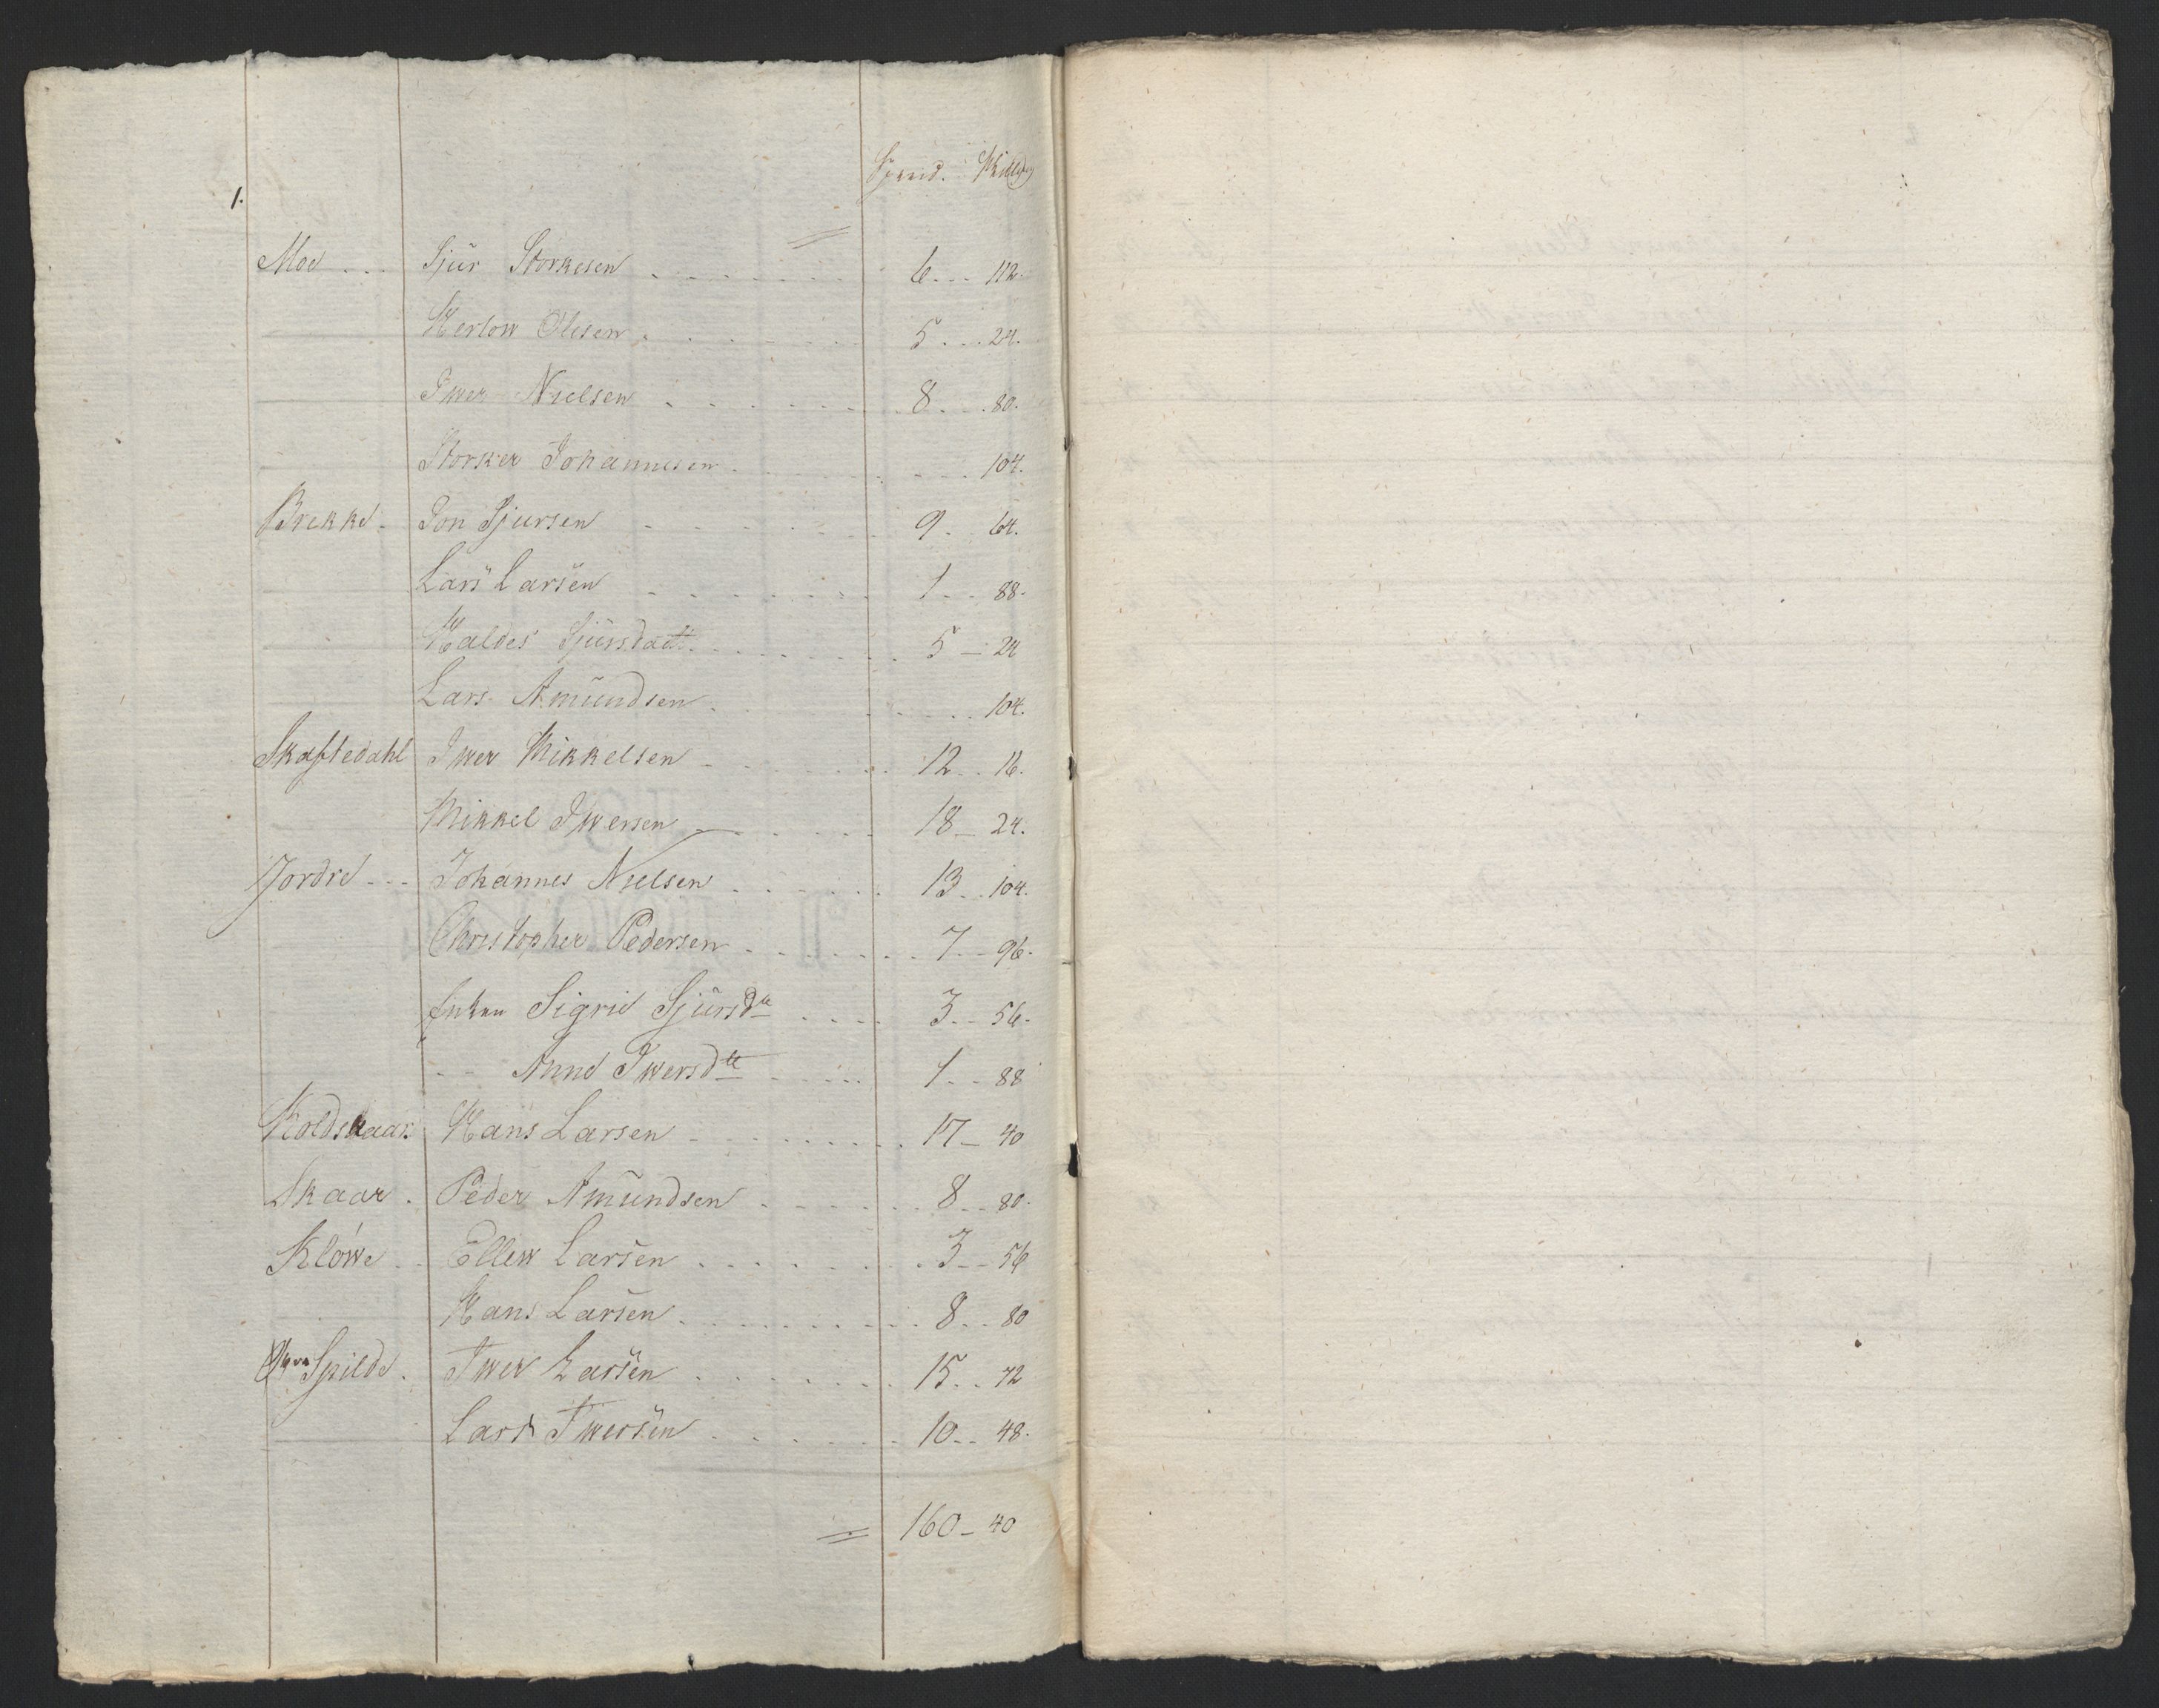 Spetid. Skilling
1.
Moe - - - Sjur Storkesen - - - - - - - 6 - - - 112.
Herlow Olesen - - - - - - 5 - - - 24.
Iwer Nielsen - - - - - - - 8 - - - 80.
Storker Johannesen - - - - - - 104.
Brekke - Jon Sjursen - - - - - - 9 - - 64.
Lars Larsen - - - - - - - 1 - - 88.
Haldes Sjursdatt. - - - - - - - 5 - 24
Lars Amundsen - - - - - - 104.
Skaftedahl Iwer Mikkelsen - - - - - 12 - - 16.
Mikkel Iwersen - - - - - - 18 - 24.
Jordre - - - Johannes Nielsen - - - - - - 13 - - 104.
Christopher Pedersen - - - - - - - 7 - - 96.
Enken Sigrid Sjursdtr - - - - 3 - - 56.
- - Anne Iwersdtr - - - - - 1 - - 88
Koldskaar Hans Larsen - - - - - - - - 17 - 40
Skaar - Peder Amundsen - - - - - - 8 - - 80.
Klöwe - - Ellew Larsen - - - - - - - - 3 - - 56
Hans Larsen - - - - - - - - - - 8 - - 80
Spilde - Iwer Larsen - - - - - - - 15 - - 72
Lars Iwersen - - - - - - - 10 - - 48.
= 160 - 40